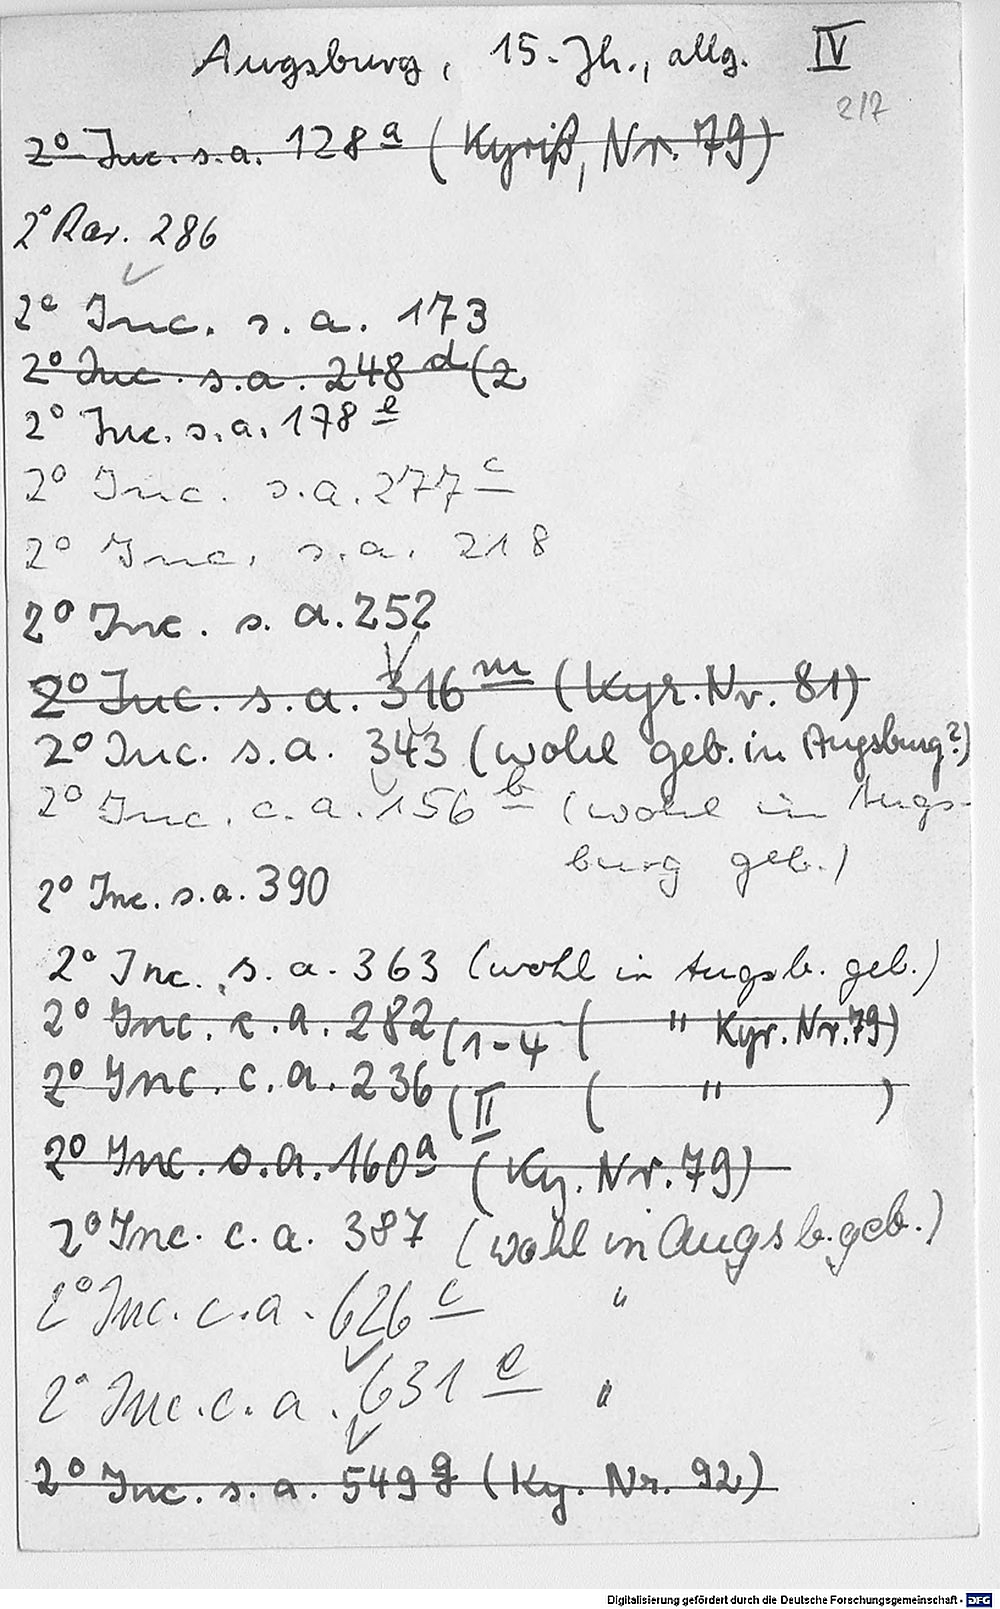 Augsburg, 15. Jh., allg. IV
217
2° Inc. s.a. 128 a (Kyriß, Nr. 79)
2° Rar. 286
2° Inc. s. a. 173
2° Inc. s.a. 248 d (2
2° Inc. s.a. 178 e
2° Inc. s.a. 277 c
2° Inc. s.a. 218
2° Inc. s. a. 252
2° Inc. s. a. 316 m (Kyr. Nr. 81)
2° Inc. s.a. 343 (wohl geb. in Augsburg?)
2° Inc. c.a. 156 b (wohl in Augs-
burg geb.)
2° Inc. s.a. 390
2° Inc. s. a. 363 (wohl in Augsb. geb.)
2° Inc. c.a. 282 (1-4 ( " Kyr. Nr. 79)
2° Inc. c.a. 236 (II ( " )
2° Inc. s.a. 160 a (Ky. Nr. 79)
2° Inc. c. a. 387 (wohl in Augsb. geb.)
2° Inc. c.a. 626 c "
2° Inc. c. a. 631 e "
2° Inc. s. a. 549 g (Ky. Nr. 92)
Digitalisierung gefördert durch die Deutsche Forschungsgemeinschaft - DFG